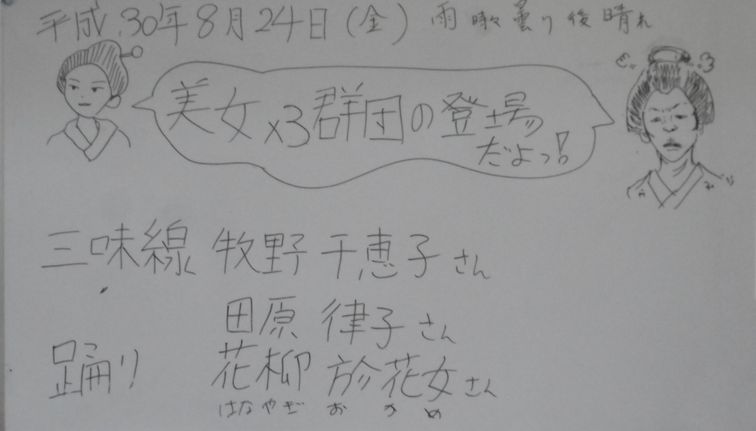 平成30年8月24日(金) 雨時々曇り後晴れ
美女×3群団の登場
だよっ!
三味線 牧野 千恵子さん
田原 律子さん
踊り 花柳 於花女さん
はなやぎ おかめ